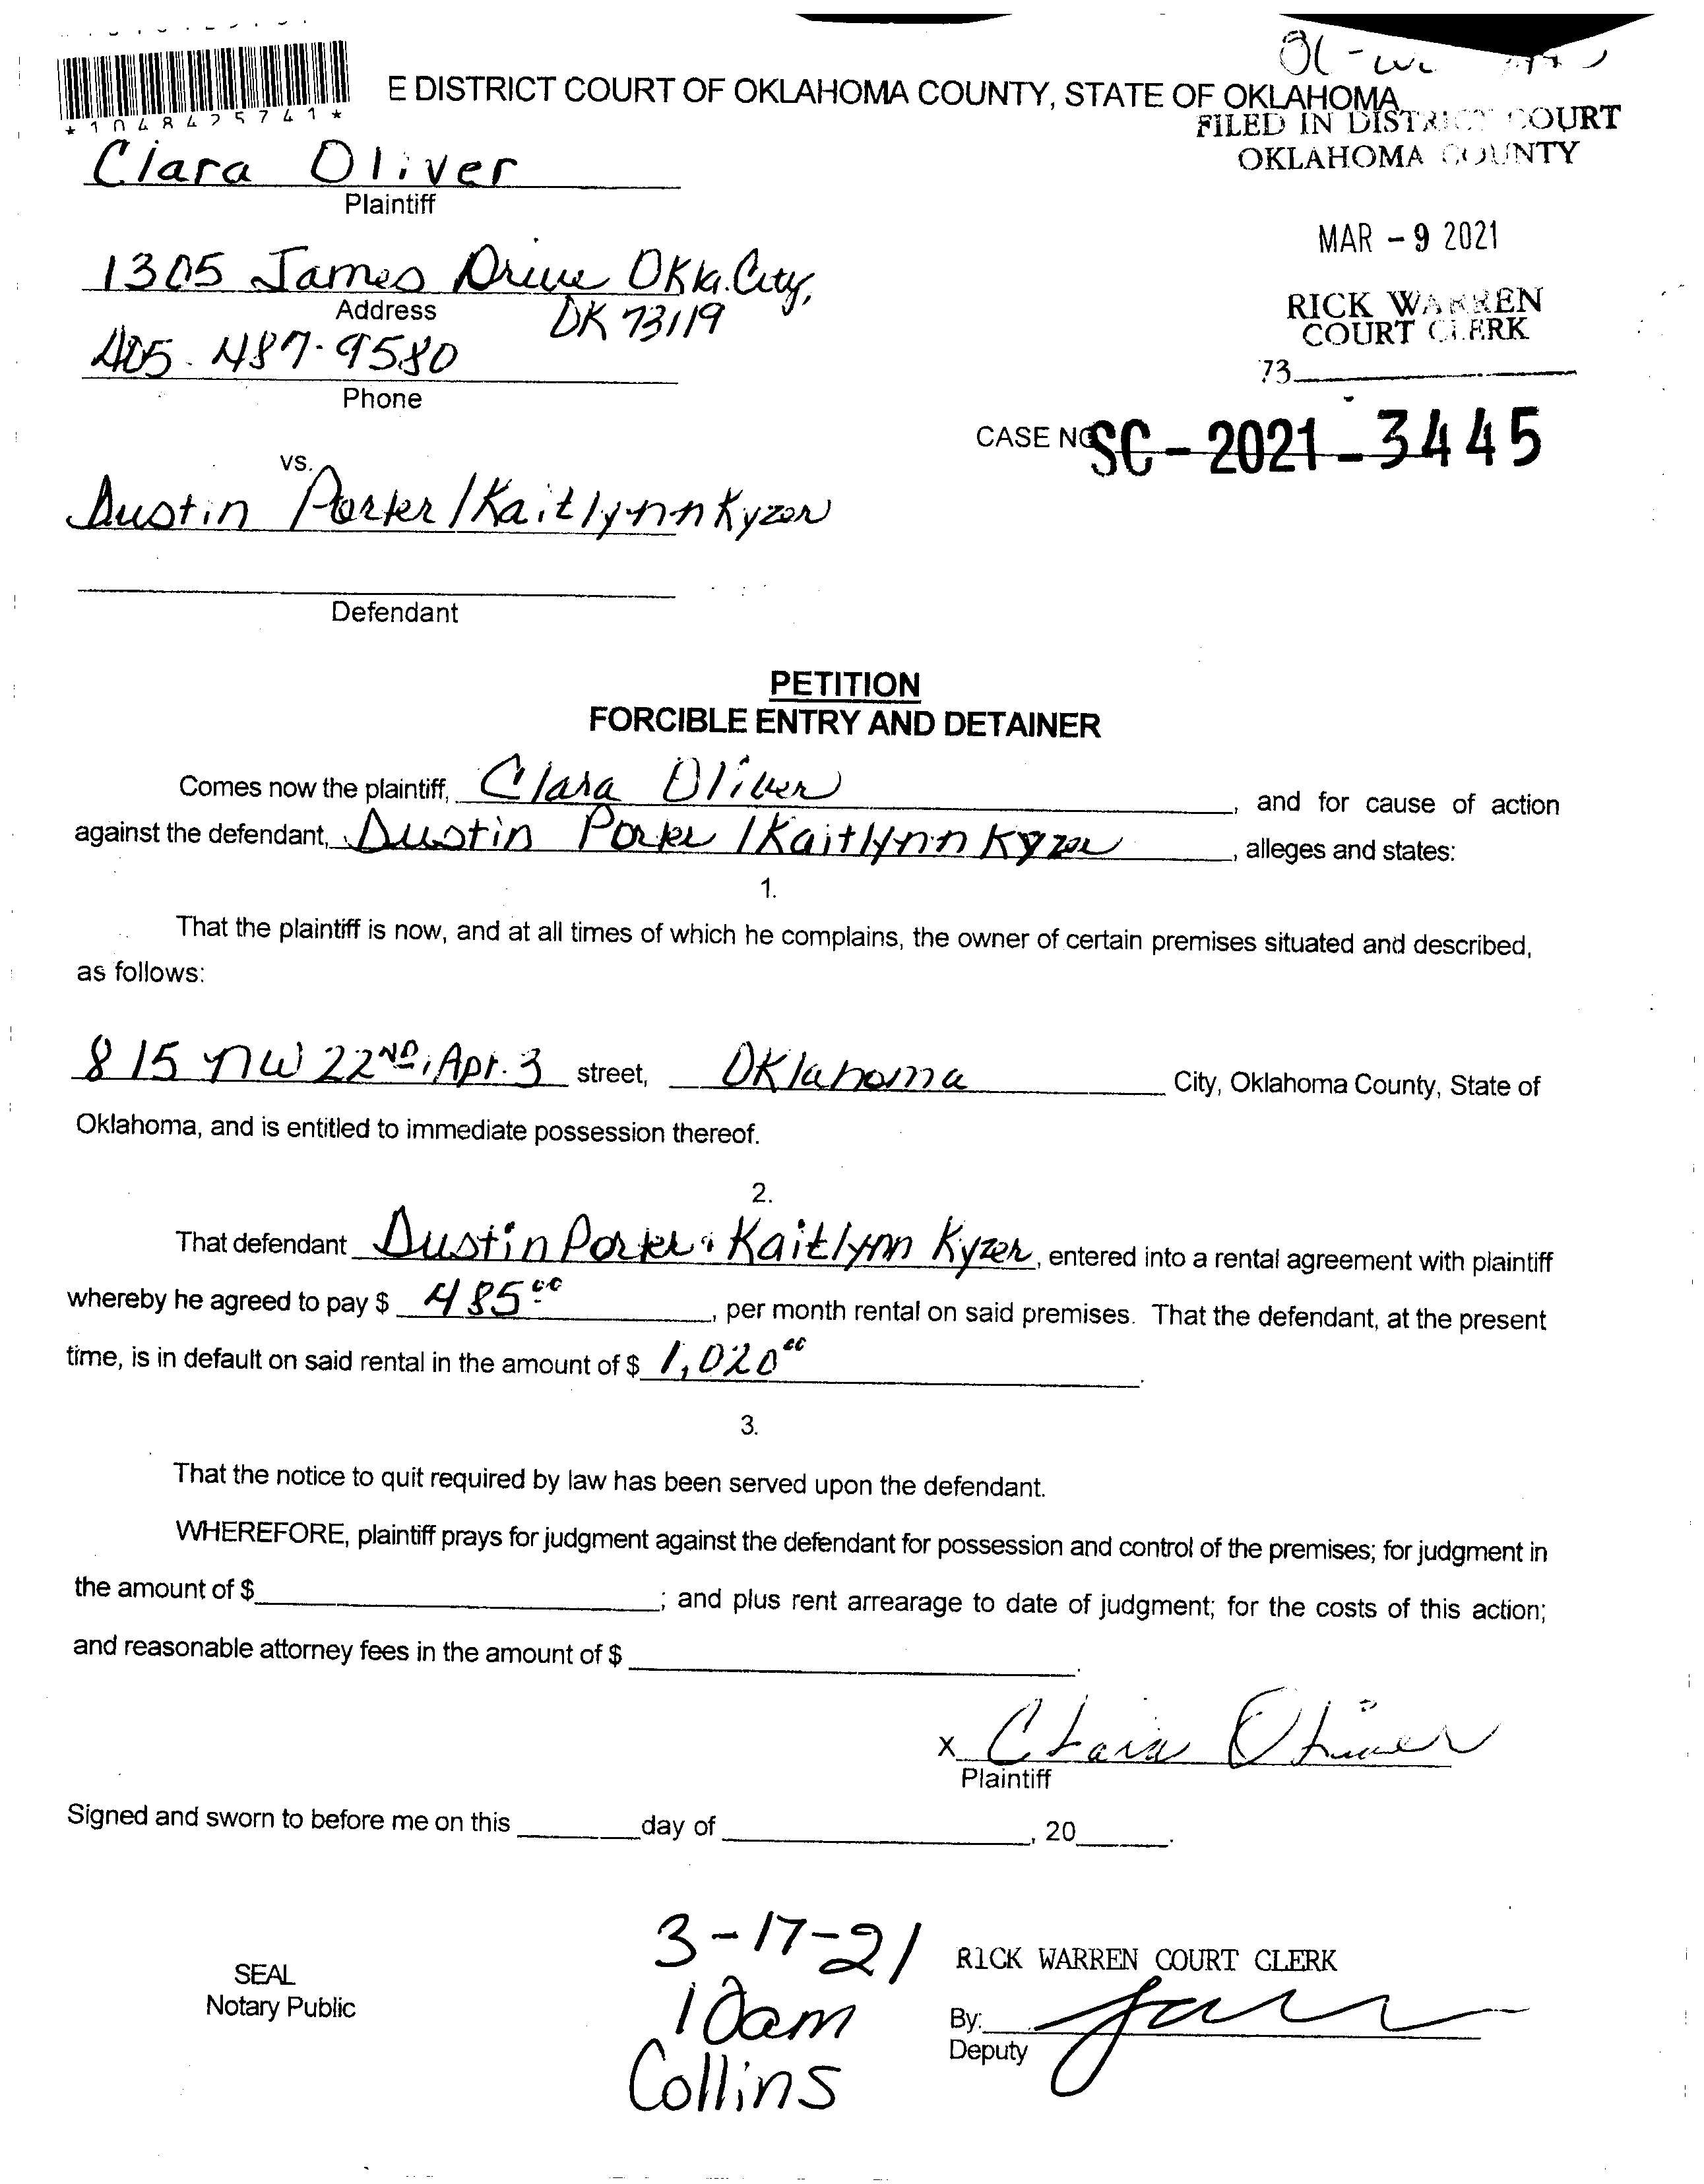 *1048425741*
E DISTRICT COURT OF OKLAHOMA COUNTY, STATE OF OKLAHOMA
FILED IN DISTRICT COURT
OKLAHOMA COUNTY
Clara Oliver
Plaintiff
MAR - 9 2021
1305 James Drive Okla. City,
Address
OK 73119
RICK WARREN
COURT CLERK
405. 487. 9580
73
Phone
CASE NO SC - 2021 - 3445
vs.
Dustin Porter / Kaitlynn Kyzer
Defendant
PETITION
FORCIBLE ENTRY AND DETAINER
Comes now the plaintiff, Clara Oliver, and for cause of action
against the defendant, Dustin Porter / Kaitlynn Kyzer, alleges and states:
1.
That the plaintiff is now, and at all times of which he complains, the owner of certain premises situated and described,
as follows:
815 NW 22ND, Apt. 3 street, Oklahoma City, Oklahoma County, State of
Oklahoma, and is entitled to immediate possession thereof.
2.
That defendant Dustin Porter & Kaitlynn Kyzer, entered into a rental agreement with plaintiff
whereby he agreed to pay $ 485.00, per month rental on said premises. That the defendant, at the present
time, is in default on said rental in the amount of $ 1,020.00.
3.
That the notice to quit required by law has been served upon the defendant.
WHEREFORE, plaintiff prays for judgment against the defendant for possession and control of the premises; for judgment in
the amount of $ ; and plus rent arrearage to date of judgment; for the costs of this action;
and reasonable attorney fees in the amount of $ .
X Clara Oliver
Plaintiff
Signed and sworn to before me on this day of , 20 .
3-17-21
10am
Collins
SEAL
Notary Public
RICK WARREN COURT CLERK
By:
Deputy